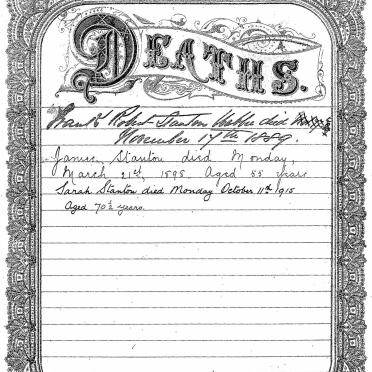 DEATHS.
Frank Robert Stanton Webbe died
November 17th 1889.
James Stanton died Monday,
March 21st, 1898 Aged 55 years
Sarah Stanton died Monday October 11th 1915
Aged 70½ years.